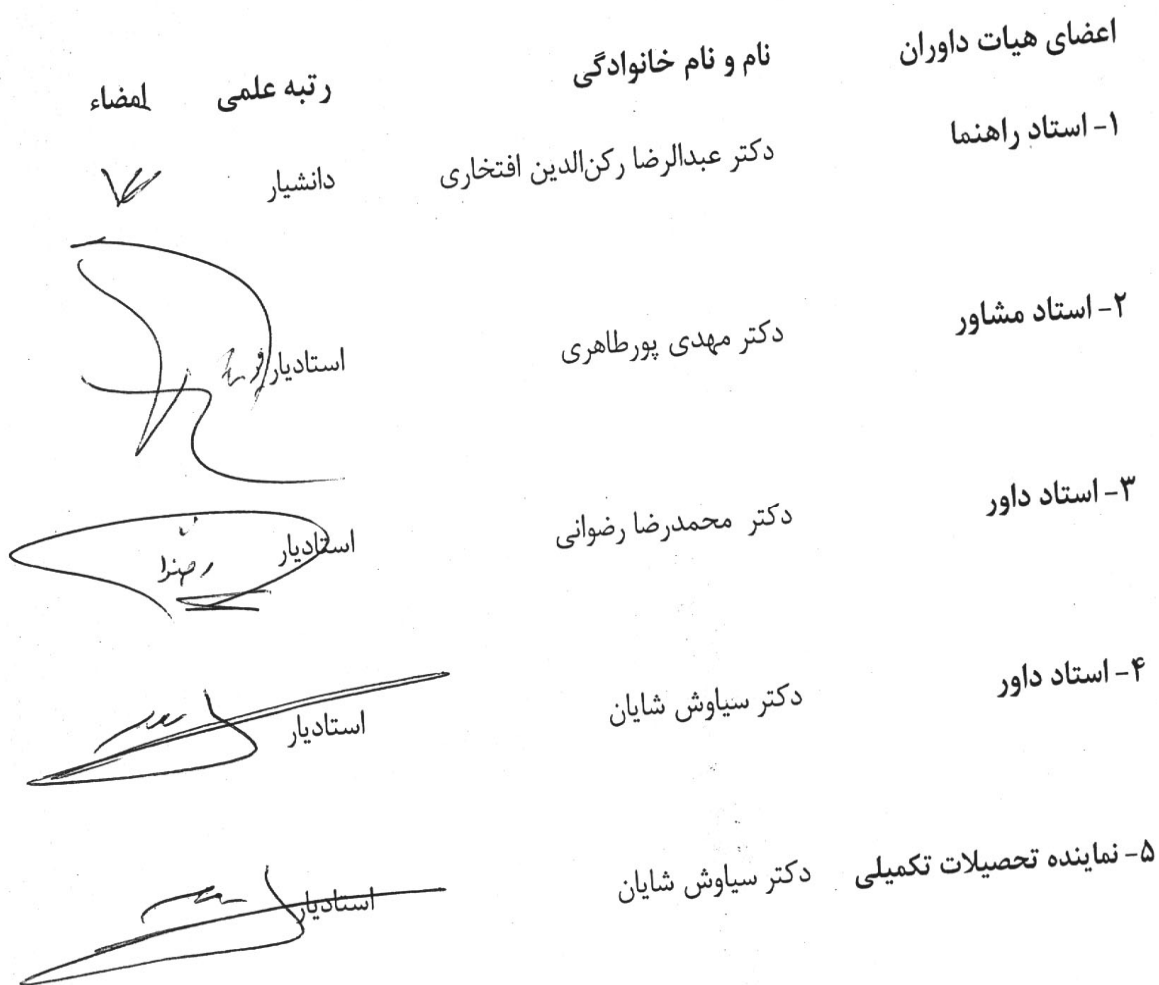 اعضای هیات داوران نام و نام خانوادگی رتبه علمی امضاء
۱- استاد راهنما دکتر عبدالرضا رکن‌الدین افتخاری دانشیار
۲- استاد مشاور دکتر مهدی پورطاهری استادیار
۳- استاد داور دکتر محمدرضا رضوانی استادیار
۴- استاد داور دکتر سیاوش شایان استادیار
۵- نماینده تحصیلات تکمیلی دکتر سیاوش شایان استادیار